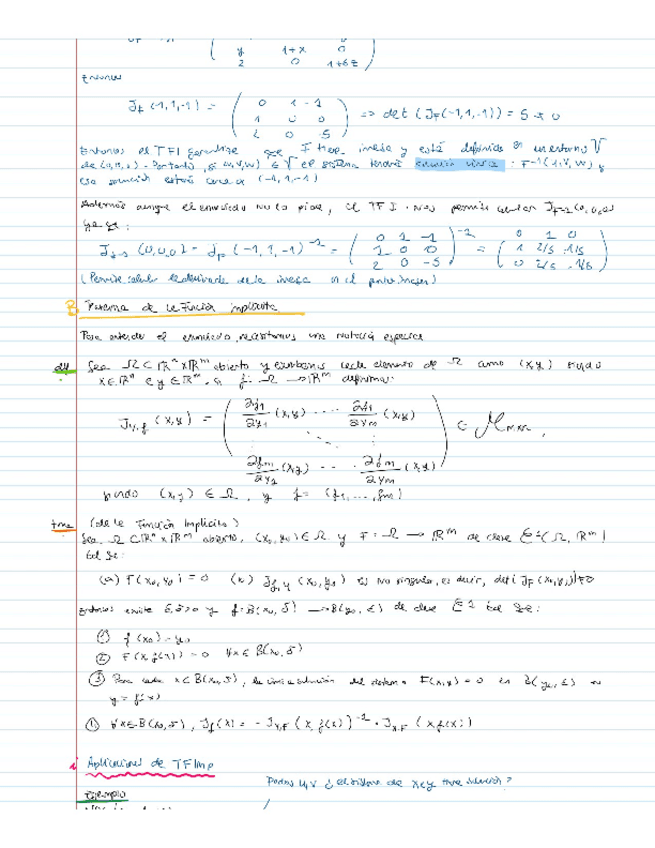 y 1+x 0
2 0 1+6z
Entonces
J_F (-1,1,-1) = ( 0 1 -1 / 1 0 0 / 2 0 -5 ) => det (J_F(-1,1,-1)) = 5 ≠ 0
Entonces el TFI garantiza que F tiene inversa y está definida en un entorno V
de (0,0,0). Por tanto, si (u,v,w) ∈ V el sistema tendrá solución única : F^-1(u,v,w) y
esa solución estará cerca (-1,1,-1)
Además aunque el enunciado no lo pide, el TFI nos permite calcular J_F^-1 (0,0,0)
ya que:
J_F^-1 (0,0,0) = J_F (-1,1,-1)^-1 = ( 0 1 -1 / 1 0 0 / 2 0 -5 )^-1 = ( 0 1 0 / 1 2/5 -1/5 / 0 2/5 -1/5 )
(Permite calcular la derivada de la inversa en el punto imagen)
B Teorema de la Función implícita
Para entender el enunciado, necesitamos una notación especial
def Sea Ω ⊂ R^n x R^m abierto y escribamos cada elemento de Ω como (x,y) siendo
x ∈ R^n e y ∈ R^m, a f: Ω → R^m definimos:
J_{y,f} (x,y) = ( ∂f1/∂y1 (x,y) ... ∂f1/∂ym (x,y) / ∂fm/∂y1 (x,y) ... ∂fm/∂ym (x,y) ) ∈ M_{m,m},
siendo (x,y) ∈ Ω, y f = (f1, ..., fm)
tma (de la Función Implícita)
Sea Ω ⊂ R^n x R^m abierto, (x0, y0) ∈ Ω y F = Ω → R^m de clase C^1(Ω, R^m)
tal que:
(a) F(x0, y0) = 0 (b) J_{F,y} (x0, y0) es no singular, es decir, det(J_F(x0,y0)) ≠ 0
Entonces existe ε,δ>0 y f: B(x0, δ) → B(y0, ε) de clase C^1 tal que:
① f(x0) = y0
② F(x, f(x)) = 0 ∀x ∈ B(x0, δ)
③ Para cada x ∈ B(x0, δ), la única solución del sistema F(x,y) = 0 en B(y0, ε) es
y = f(x)
④ ∀x ∈ B(x0, δ), J_f(x) = - J_{y,F} (x, f(x))^-1 · J_{x,F} (x, f(x))
i Aplicaciones de TFImp
Para u,v ¿el sistema de x e y tiene solución?
Ejemplo